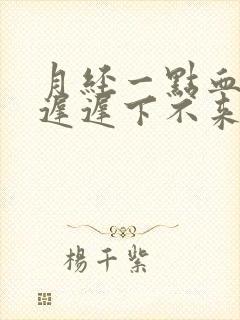 月經一點血
遲遲下不來
楊千紫